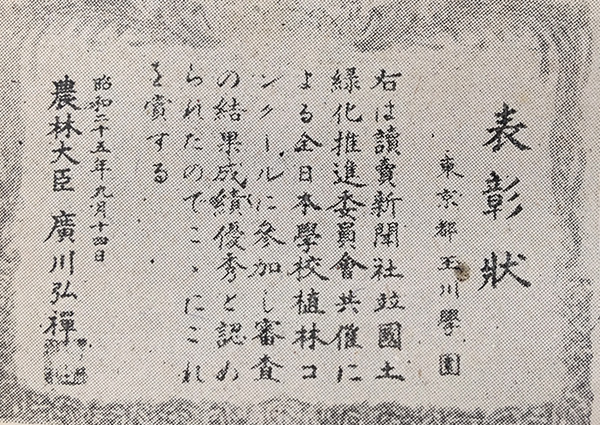 表彰狀
東京都玉川學園
右は讀賣新聞社竝國土
緑化推進委員會共催に
よる全日本學校植林コ
ンクールに參加し審査
の結果成績優秀と認め
られたのでこゝにこれ
を賞する
昭和二十五年九月十四日
農林大臣 廣川弘禪